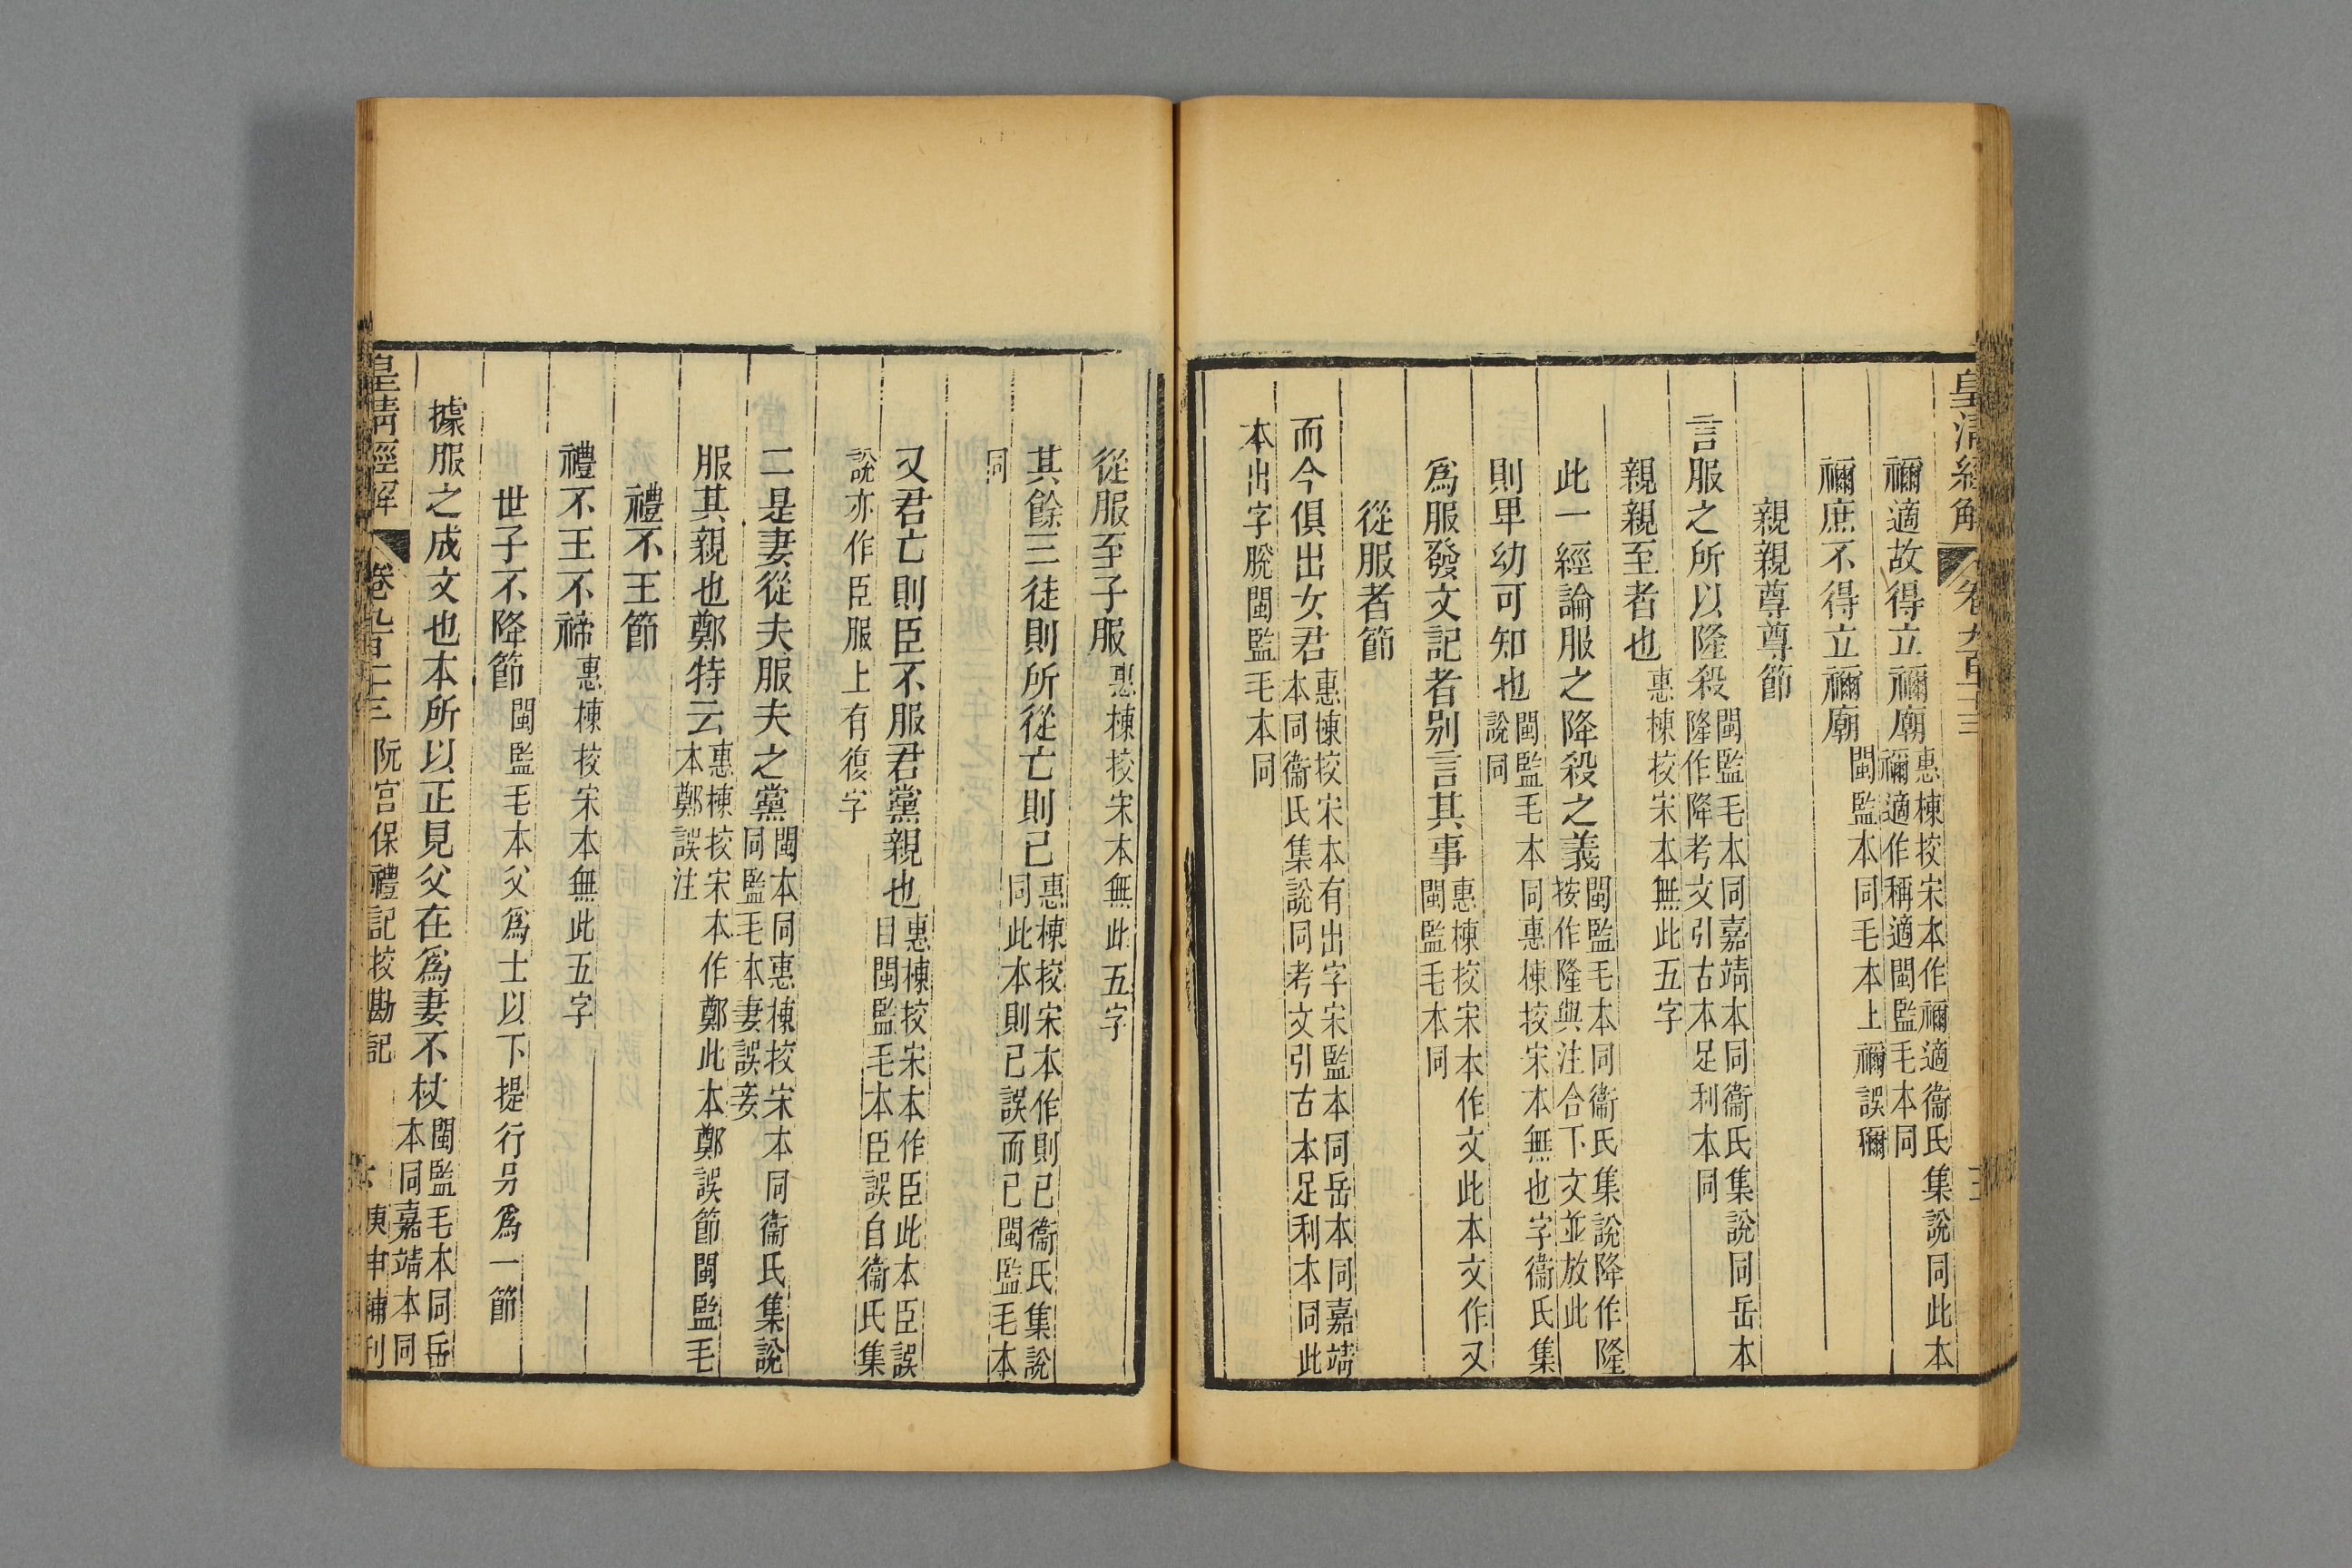 皇清經解 卷九百十三
禰適故得立禰廟 惠棟挍宋本作禰適衞氏集說同此本
禰適作稱適閩監毛本同
禰庶不得立禰廟 閩監本同毛本上禰誤穪
親親尊尊節
言服之所以隆殺 閩監毛本同嘉靖本同衞氏集說同岳本
隆作降考文引古本足利本同
親親至者也 惠棟挍宋本無此五字
此一經論服之降殺之義 閩監毛本同衞氏集說降作隆
按作隆與注合下文並放此
則卑幼可知也 閩監毛本同惠棟挍宋本無也字衞氏集
說同
爲服發文記者别言其事 惠棟挍宋本作文此本文作又
閩監毛本同
從服者節
而今俱出女君 惠棟挍宋本有出字宋監本同岳本同嘉靖
本同衞氏集說同考文引古本足利本同此
本出字脫閩監毛本同
從服至子服 惠棟挍宋本無此五字
其餘三徒則所從亡則已 惠棟挍宋本作則已衞氏集說
同此本則已誤而已閩監毛本
同
又君亡則臣不服君黨親也 惠棟挍宋本作臣此本臣誤
目閩監毛本臣誤自衞氏集
說亦作臣服上有復字
二是妻從夫服夫之黨 閩本同惠棟挍宋本同衞氏集說
同監毛本妻誤妾
服其親也鄭特云 惠棟挍宋本作鄭此本鄭誤節閩監毛
本鄭誤注
禮不王節
禮不王不禘 惠棟挍宋本無此五字
世子不降節 閩監毛本父爲士以下提行另爲一節
據服之成文也本所以正見父在爲妻不杖 閩監毛本同岳
本同嘉靖本同
皇清經解 卷九百十三 阮宮保禮記挍勘記 庚申補刊